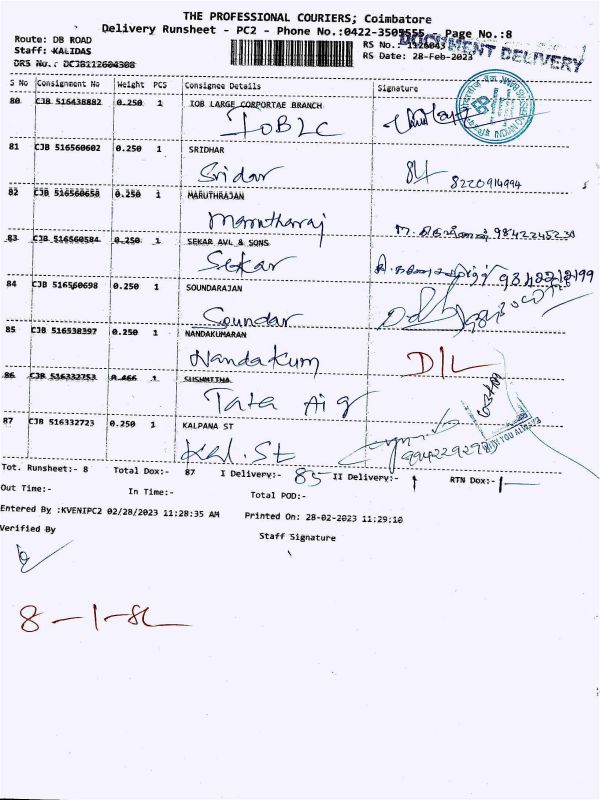 THE PROFESSIONAL COURIERS; Coimbatore
Delivery Runsheet - PC2 - Phone No.:0422-3505555 - Page No.:8
Route: DB ROAD
RS No.: 1126043
DOCUMENT DELIVERY
Staff: KALIDAS
RS Date: 28-Feb-2023
DRS No.: DCJB112604308
S No Consignment No Weight PCS Consignee Details Signature
80 CJB 516438882 0.250 1 IOB LARGE CORPORTAE BRANCH
IOB LC
81 CJB 516560602 0.250 1 SRIDHAR
Sridar
8220914994
82 CJB 516560658 0.250 1 MARUTHRAJAN
Marutharaj
9842245230
83 CJB 516560584 0.250 1 SEKAR AVL & SONS
Sekar
84 CJB 516560698 0.250 1 SOUNDARAJAN
Soundar
85 CJB 516538397 0.250 1 NANDAKUMARAN
Nandakum D/L
86 CJB 516332753 0.466 1
Tata Aig
87 CJB 516332723 0.250 1 KALPANA ST
Kal. St
Tot. Runsheet:- 8 Total Dox:- 87 I Delivery:- 85 II Delivery:- 1 RTN Dox:- 1
Out Time:- In Time:- Total POD:-
Entered By :KVENIPC2 02/28/2023 11:28:35 AM Printed On: 28-02-2023 11:29:10
Verified By Staff Signature